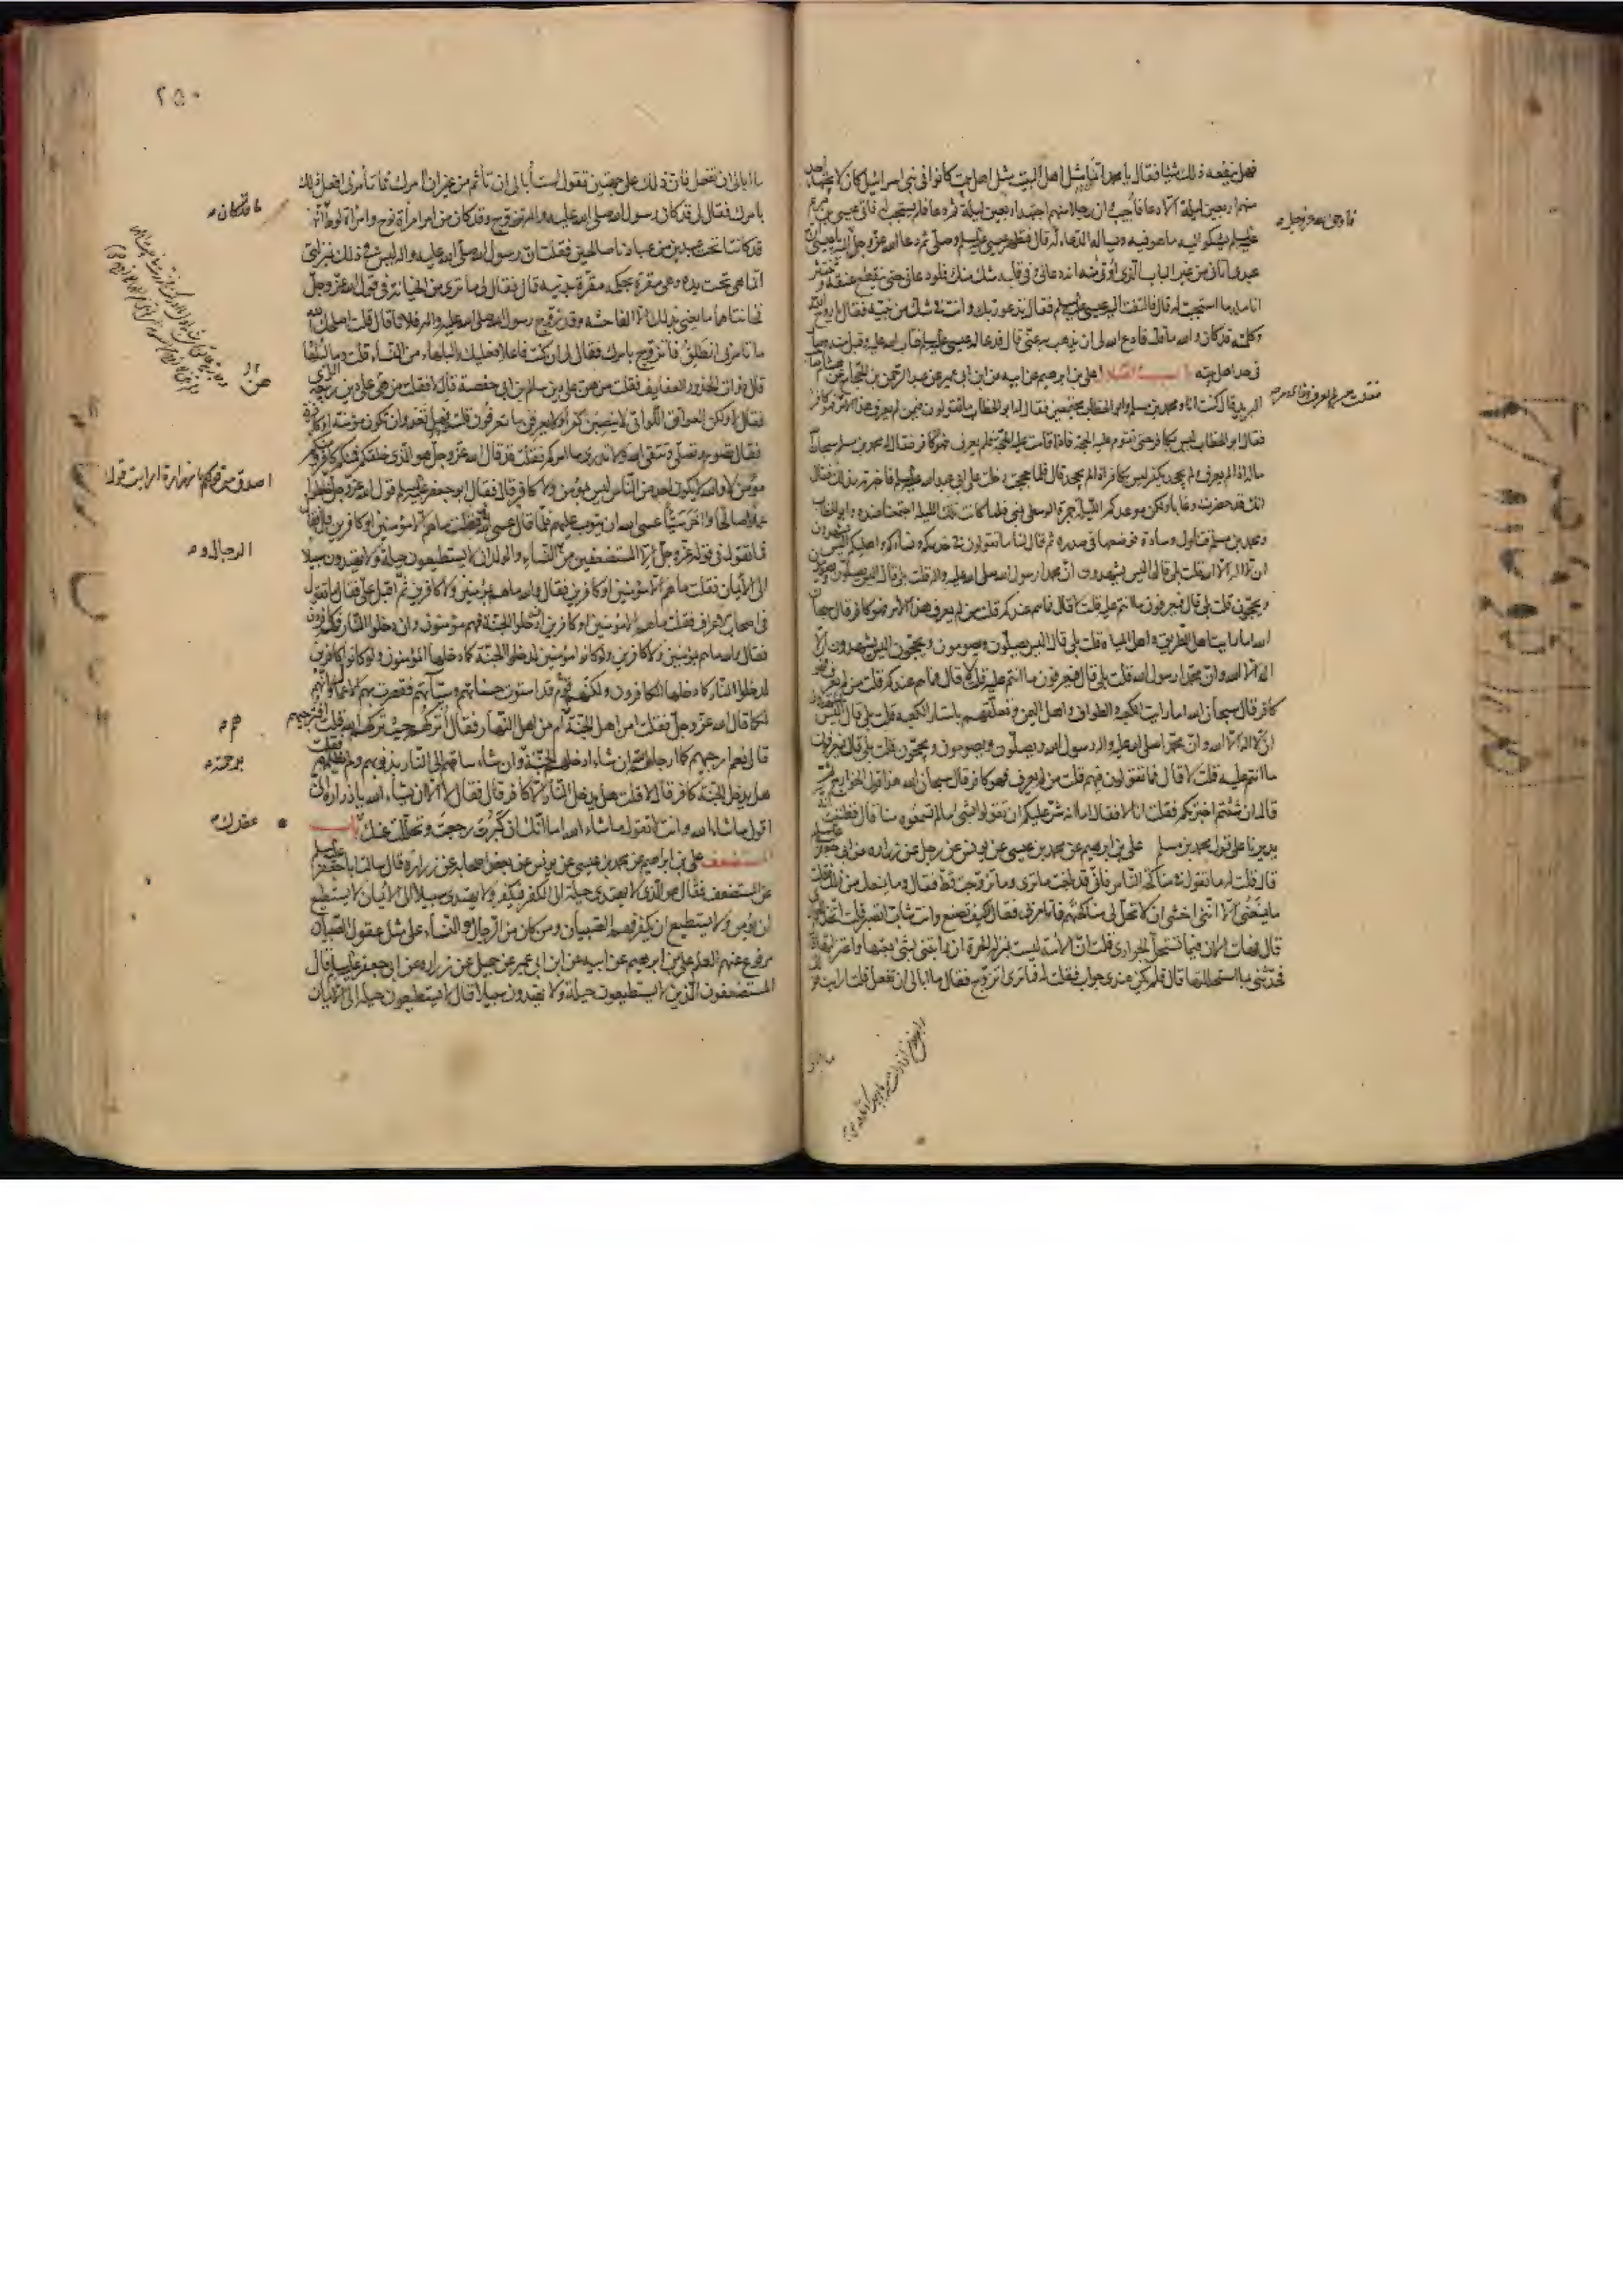 فهل ينفعه ذلك شيئا فقال يا با محمد انما مثل اهل البيت مثل اهل بيت كانوا في بني اسرائيل كان لا يجتهد احد
منهم اربعين ليلة الا دعا فاجيب وان رجلا منهم اجتهد اربعين ليلة ثم دعا فلم يستجب له فاتى عيسى بن مريم
عليه السلم يشكو اليه ما هو فيه ويساله الدعاء له قال فتطهر عيسى عليه السلم وصلى ثم دعا الله عز وجل
عبدي اتاني من غير الباب الذي اوتى منه انه دعاني وفي قلبه شك منك فلو دعاني حتى ينقطع عنقه وتنتثر
انامله ما استجبت له قال فالتفت اليه عيسى عليه السلم فقال تدعو ربك وانت في شك من نبيه فقال يا روح الله
وكلمته قد كان والله ما قلت فادع الله لي ان يذهب به عني قال فدعا له عيسى عليه السلم فتاب الله عليه وقبل منه وصار
في حد اهل بيته باب الضلال علي بن ابراهيم عن ابيه عن ابن ابي عمير عن عبد الرحمن بن الحجاج عن هاشم صاحب
البريد قال كنت انا ومحمد بن مسلم وابو الخطاب مجتمعين فقال لنا ابو الخطاب ما تقولون فيمن لم يعرف هذا الامر فهو كافر
فقال ابو الخطاب ليس بكافر حتى تقوم عليه الحجة فاذا قامت عليه الحجة فلم يعرف فهو كافر فقال له محمد بن مسلم سبحان الله
ما له اذا لم يعرف ولم يجحد يكفر ليس بكافر اذا لم يجحد قال فلما حججت دخلت على ابي عبد الله عليه السلم فاخبرته بذلك فقال
انك قد حضرت وغابا ولكن موعدكم الليلة الجمرة الوسطى بمنى فلما كانت تلك الليلة اجتمعنا عنده وابو الخطاب
ومحمد بن مسلم فتناول وسادة فوضعها في صدره ثم قال لنا ما تقولون في خدمكم ونسائكم واهليكم اليس يشهدون
ان لا اله الا الله قلت بلى قال اليس يشهدون ان محمدا رسول الله صلى الله عليه واله قلت بلى قال اليس يصلون ويصومون
ويحجون قلت بلى قال فيعرفون ما انتم عليه قلت لا قال فما هم عندكم قلت من لم يعرف هذا الامر فهو كافر قال سبحان
الله اما رايت اهل الطريق واهل المياه قلت بلى قال اليس يصلون ويصومون ويحجون اليس يشهدون ان لا
اله الا الله وان محمدا رسول الله قلت بلى قال فيعرفون ما انتم عليه قلت لا قال فما هم عندكم قلت من لم يعرف فهو
كافر قال سبحان الله اما رايت الكعبة والطواف واهل اليمن وتعلقهم باستار الكعبة قلت بلى قال اليس يشهدون
ان لا اله الا الله وان محمدا صلى الله عليه واله رسول الله ويصلون ويصومون ويحجون قلت بلى قال فيعرفون
ما انتم عليه قلت لا قال فما تقولون فيهم قلت من لم يعرف فهو كافر قال سبحان الله هذا قول الخوارج ثم
قال ان شئتم اخبرتكم فقلت انا لا فقال اما انه شر عليكم ان تقولوا بشيء ما لم تسمعوه منا قال فظننت انه
يديرنا على قول محمد بن مسلم علي بن ابراهيم عن محمد بن عيسى عن يونس عن رجل عن زرارة عن ابي جعفر عليه السلم
قال قلت له ما تقول في مناكحة الناس فاني قد بلغت ما ترى وما تزوجت قط فقال وما يمنعك من ذلك فقلت
ما يمنعني الا انني اخشى ان لا تحل لي مناكحتهم فما تامرني فقال كيف تصنع وانت شاب اتصبر قلت اتخذ الجواري
قال فهات الان فبما تستحل الجواري قلت ان الامة ليست بمنزلة الحرة ان رابتني بشيء بعتها واعتزلتها قال
فحدثني بما استحللتها قال فلم يكن عندي جواب فقلت له فما ترى اتزوج فقال ما ابالي ان تفعل قلت ارايت قولك
ما ابالي ان تفعل فان ذلك على جهتين تقول لست ابالي ان تاثم من غير ان امرك فما تامرني افعل ذلك
بامرك فقال لي قد كان رسول الله صلى الله عليه واله تزوج وقد كان من امر امرأة نوح وامرأة لوط
قد كانتا تحت عبدين من عبادنا صالحين فقلت ان رسول الله صلى الله عليه واله ليس في ذلك بمنزلتي
انما هي تحت يده وهي مقرة بحكمه مقرة بدينه قال فقال لي ما ترى من الخيانة في قول الله عز وجل
فخانتاهما ما يعني بذلك الا الفاحشة وقد تزوج رسول الله صلى الله عليه واله فلانا قال قلت اصلحك الله
ما تامرني انطلق فاتزوج بامرك فقال لي ان كنت فاعلا فعليك بالبلهاء من النساء قلت وما البلهاء
قال ذوات الخدور العفايف فقلت من هي على دين سالم بن ابي حفصة قال لا فقلت من هي على دين ربيعة الراي
فقال لا ولكن العواتق اللواتي لا ينصبن كفرا ولا يعرفن ما تعرفون قلت وهل تعدو ان تكون مؤمنة او كافرة
فقال تصوم وتصلي وتتقي الله ولا تدري ما امركم فقلت قد قال الله عز وجل هو الذي خلقكم فمنكم كافر ومنكم
مؤمن لا والله لا يكون احد من الناس ليس بمؤمن ولا كافر قال فقال ابو جعفر عليه السلم قول الله عز وجل خلطوا
عملا صالحا واخر سيئا عسى الله ان يتوب عليهم فلما قال عسى فقلت ما هم الا مؤمنين او كافرين قال فقال
فما تقول في قوله عز وجل الا المستضعفين من النساء والولدان لا يستطيعون حيلة ولا يهتدون سبيلا
الى الايمان فقلت ما هم الا مؤمنين او كافرين فقال والله ما هم بمؤمنين ولا كافرين ثم اقبل علي فقال ما تقول
في اصحاب الاعراف فقلت ما هم الا مؤمنين او كافرين ان دخلوا الجنة فهم مؤمنون وان دخلوا النار فهم كافرون
فقال والله ما هم بمؤمنين ولا كافرين ولو كانوا مؤمنين لدخلوا الجنة كما دخلها المؤمنون ولو كانوا كافرين
لدخلوا النار كما دخلها الكافرون ولكنهم قوم قد استوت حسناتهم وسيئاتهم فقصرت بهم الاعمال وانهم
لكما قال الله عز وجل فقلت امن اهل الجنة ام من اهل النار فقال اتركهم حيث تركهم الله قلت افترجيهم
قال نعم ارجيهم كما ارجاهم الله ان شاء ادخلهم الجنة وان شاء ساقهم الى النار بذنوبهم ولم يظلمهم فقلت
هل يدخل الجنة كافر قال لا قلت هل يدخل النار الا كافر قال فقال لا الا ان يشاء الله يا زرارة اني
اقول ما شاء الله وانت لا تقول ما شاء الله اما انك ان كبرت رجعت وتحللت عنك باب
المستضعف علي بن ابراهيم عن محمد بن عيسى عن يونس عن بعض اصحابه عن زرارة قال سالت ابا جعفر عليه السلم
عن المستضعف فقال هو الذي لا يهتدي حيلة الى الكفر فيكفر ولا يهتدي سبيلا الى الايمان لا يستطيع
ان يؤمن ولا يستطيع ان يكفر فهم الصبيان ومن كان من الرجال والنساء على مثل عقول الصبيان
مرفوع عنهم القلم علي بن ابراهيم عن ابيه عن ابن ابي عمير عن جميل عن زرارة عن ابي جعفر عليه السلم قال
المستضعفون الذين لا يستطيعون حيلة ولا يهتدون سبيلا قال لا يستطيعون حيلة الى الايمان
٢٥٠
ما قد كان
الرجال و
هم
برحمته
عقدك